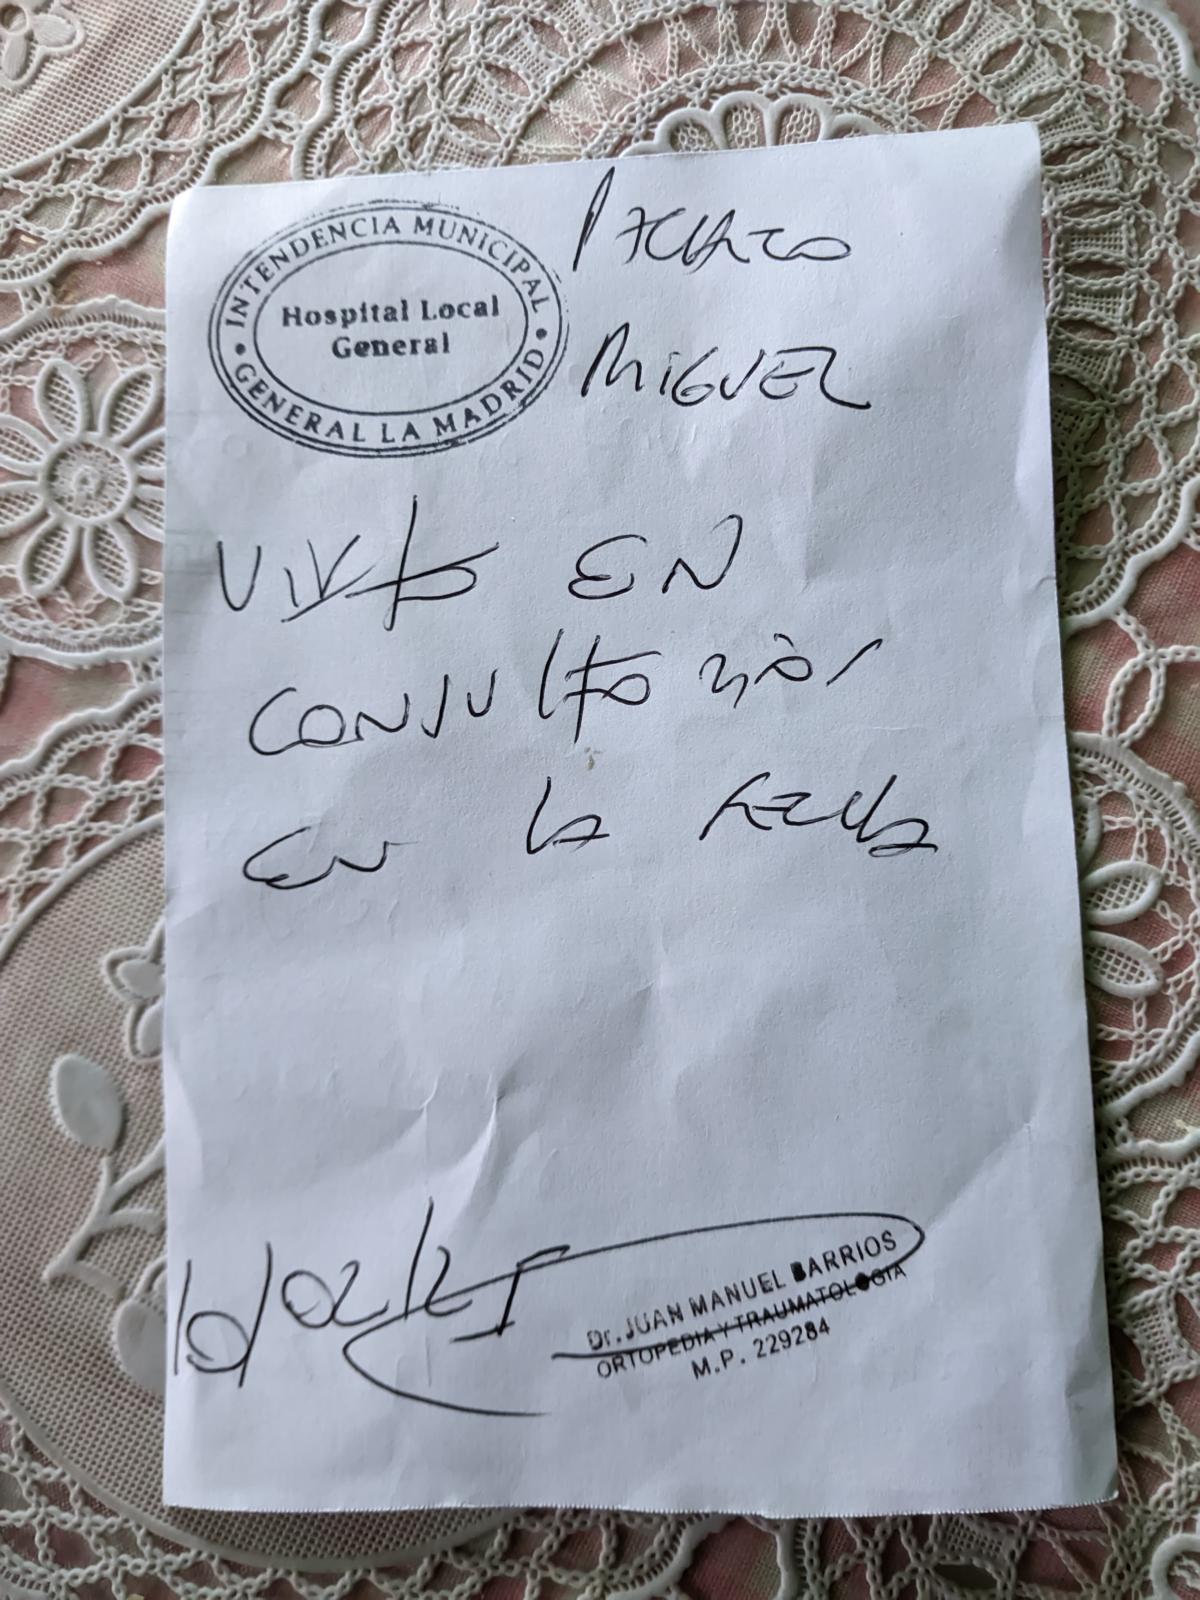 INTENDENCIA MUNICIPAL
Hospital Local
General
• GENERAL LA MADRID •
MIGUEL
VISTO EN
CONSULTORIOS
EN LA FECHA
10/02/25
Dr. JUAN MANUEL BARRIOS
ORTOPEDIA Y TRAUMATOLOGIA
M.P. 229284